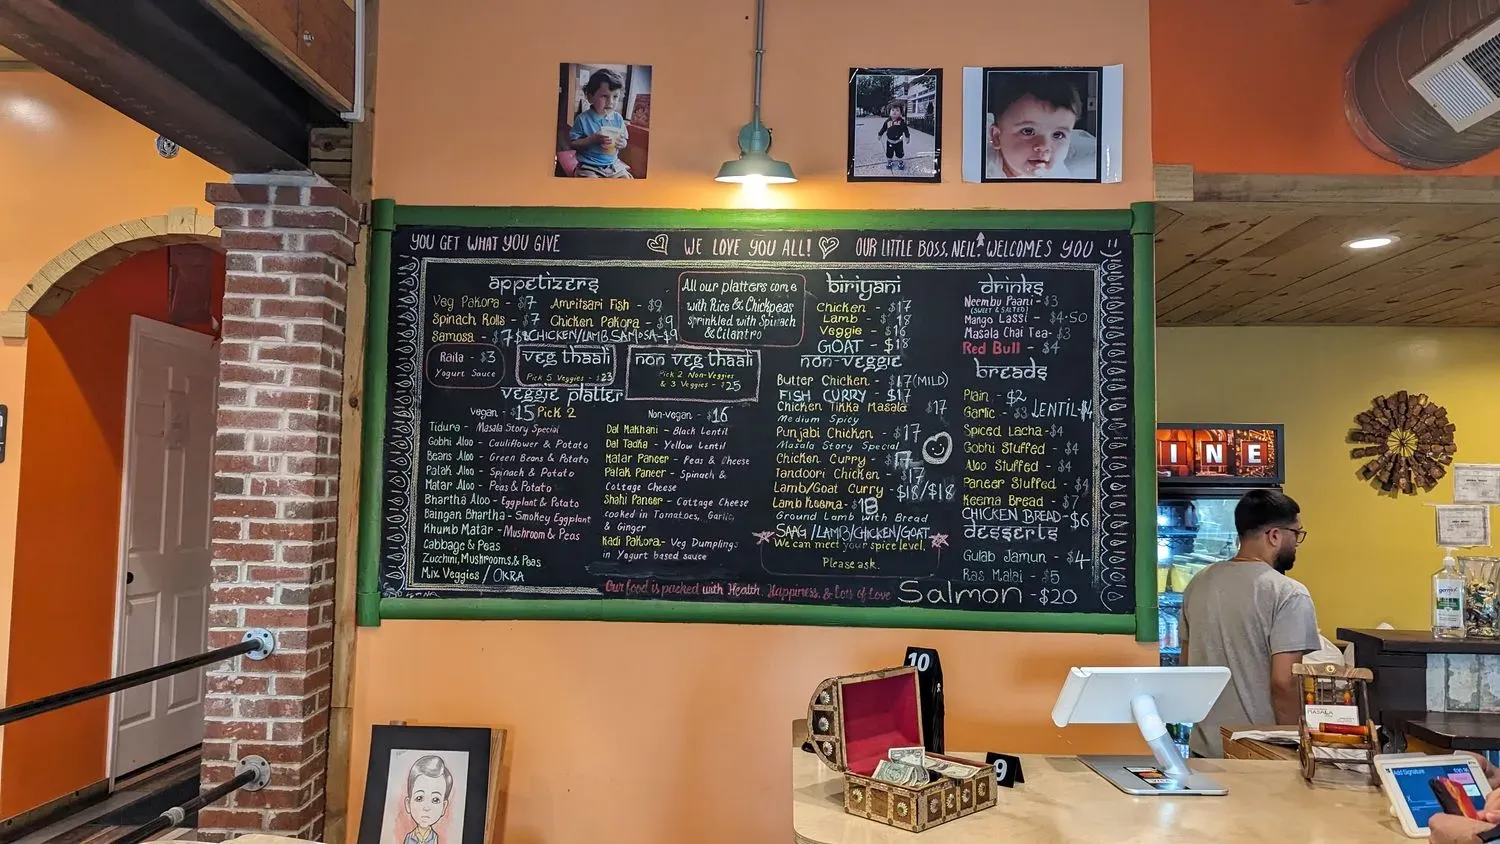 YOU GET WHAT YOU GIVE
WE LOVE YOU ALL!
OUR LITTLE BOSS, NEIL WELCOMES YOU
appetizers
Veg Pakora - $7
Spinach Rolls - $7
Samosa - $7
Amritsari Fish - $9
Chicken Pakora - $9
CHICKEN/LAMB SAMOSA - $9
Raita - $3
Yogurt Sauce
veg thaali
Pick 5 Veggies - $23
non veg thaali
Pick 2 Non-Veggies
& 3 Veggies - $25
All our platters come
with Rice & Chickpeas
sprinkled with Spinach
& Cilantro
veggie platter
vegan - $15 Pick 2
Tidura - Masala Story Special
Gobhi Aloo - Cauliflower & Potato
Beans Aloo - Green Beans & Potato
Palak Aloo - Spinach & Potato
Matar Aloo - Peas & Potato
Bhartha Aloo - Eggplant & Potato
Baingan Bhartha - Smokey Eggplant
Khumb Matar - Mushroom & Peas
Cabbage & Peas
Zucchini, Mushrooms, & Peas
Mix Veggies / OKRA
Non-vegan - $16
Dal Makhani - Black Lentil
Dal Tadka - Yellow Lentil
Matar Paneer - Peas & Cheese
Palak Paneer - Spinach &
Cottage Cheese
Shahi Paneer - Cottage Cheese
cooked in Tomatoes, Garlic,
& Ginger
Kadi Pakora - Veg Dumplings
in Yogurt based sauce
biriyani
Chicken - $17
Lamb - $18
Veggie - $16
GOAT - $18
non-veggie
Butter Chicken - $17 (MILD)
FISH CURRY - $17
Chicken Tikka Masala $17
Medium Spicy
Punjabi Chicken - $17
Masala Story Special
Chicken Curry - $17
Tandoori Chicken - $17
Lamb/Goat Curry - $18/$18
Lamb Keema - $18
Ground Lamb with Bread
SAAG/LAMB/CHICKEN/GOAT
We can meet your spice level,
Please ask.
drinks
Neembu Paani - $3
(SWEET & SALTED)
Mango Lassi - $4.50
Masala Chai Tea - $3
Red Bull - $4
breads
Plain - $2
Garlic - $3 LENTIL-$4
Spiced Lacha - $4
Gobhi Stuffed - $4
Aloo Stuffed - $4
Paneer Stuffed - $4
Keema Bread - $7
CHICKEN BREAD - $6
desserts
Gulab Jamun - $4
Ras Malai - $5
Our food is packed with Health, Happiness, & Lots of Love
Salmon - $20
INE
10
9
MASALA
Add Signature